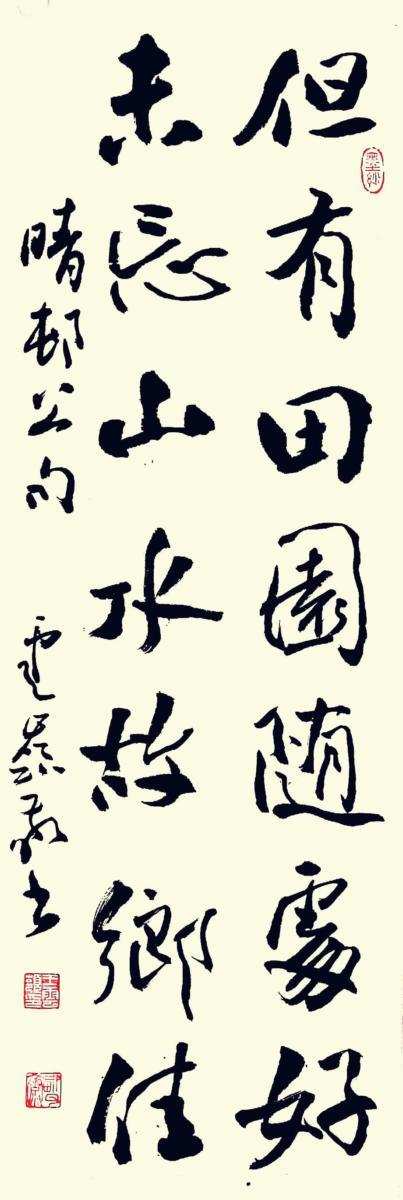 但有田園随處好
未忘山水故鄉佳
晴邨公句